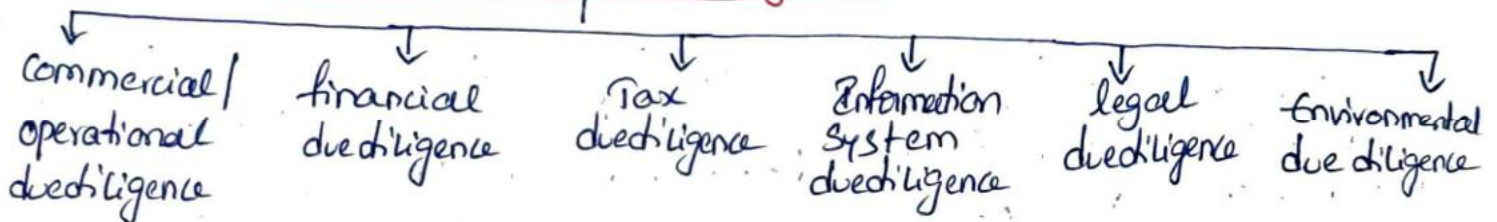 Commercial/
operational
duediligence
financial
duediligence
Tax
duediligence
Information
System
duediligence
legal
duediligence
Environmental
due diligence